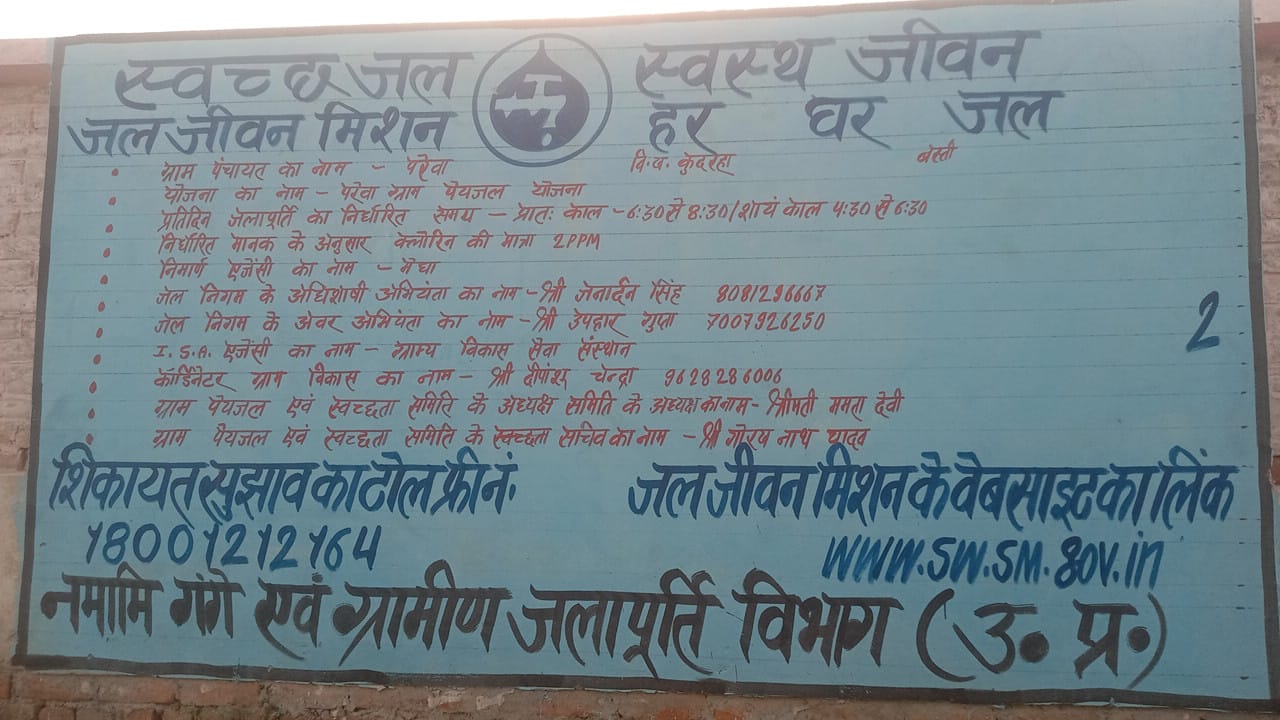 स्वच्छ जल स्वस्थ जीवन
जल जीवन मिशन हर घर जल
• ग्राम पंचायत का नाम - परेवा वि.ख. कुदरहा बस्ती
• योजना का नाम - परेवा ग्राम पेयजल योजना
• प्रतिदिन जलापूर्ति का निर्धारित समय - प्रातः काल - 6:30 से 8:30/शायं काल 4:30 से 6:30
• निर्धारित मानक के अनुसार क्लोरिन की मात्रा 2PPM
• निमार्ण एजेंसी का नाम - मेघा
• जल निगम के अधिशाषी अभियंता का नाम - श्री जनार्दन सिंह 8081296667
• जल निगम के अवर अभियंता का नाम - श्री उपहार गुप्ता 7007926250
• I.S.A. एजेंसी का नाम - ग्राम्य विकास सेवा संस्थान
• कॉर्डिनेटर ग्राम विकास का नाम - श्री दीपांशू चन्द्रा 9628286006
• ग्राम पेयजल एवं स्वच्छता समिति के अध्यक्ष समिति के अध्यक्ष का नाम - श्रीमती ममता देवी
• ग्राम पेयजल एवं स्वच्छता समिति के स्वच्छता सचिव का नाम - श्री गोरख नाथ यादव
2
शिकायत सुझाव का टोल फ्री नं. जल जीवन मिशन के वेबसाइट का लिंक
18001212164 WWW.SW.SM.gov.in
नमामि गंगे एवं ग्रामीण जलापूर्ति विभाग (उ॰ प्र॰)